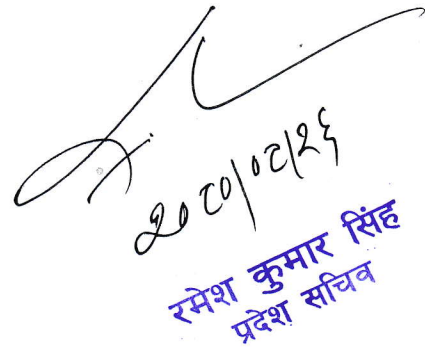 २०८०।०८।२६
रमेश कुमार सिंह
प्रदेश सचिव